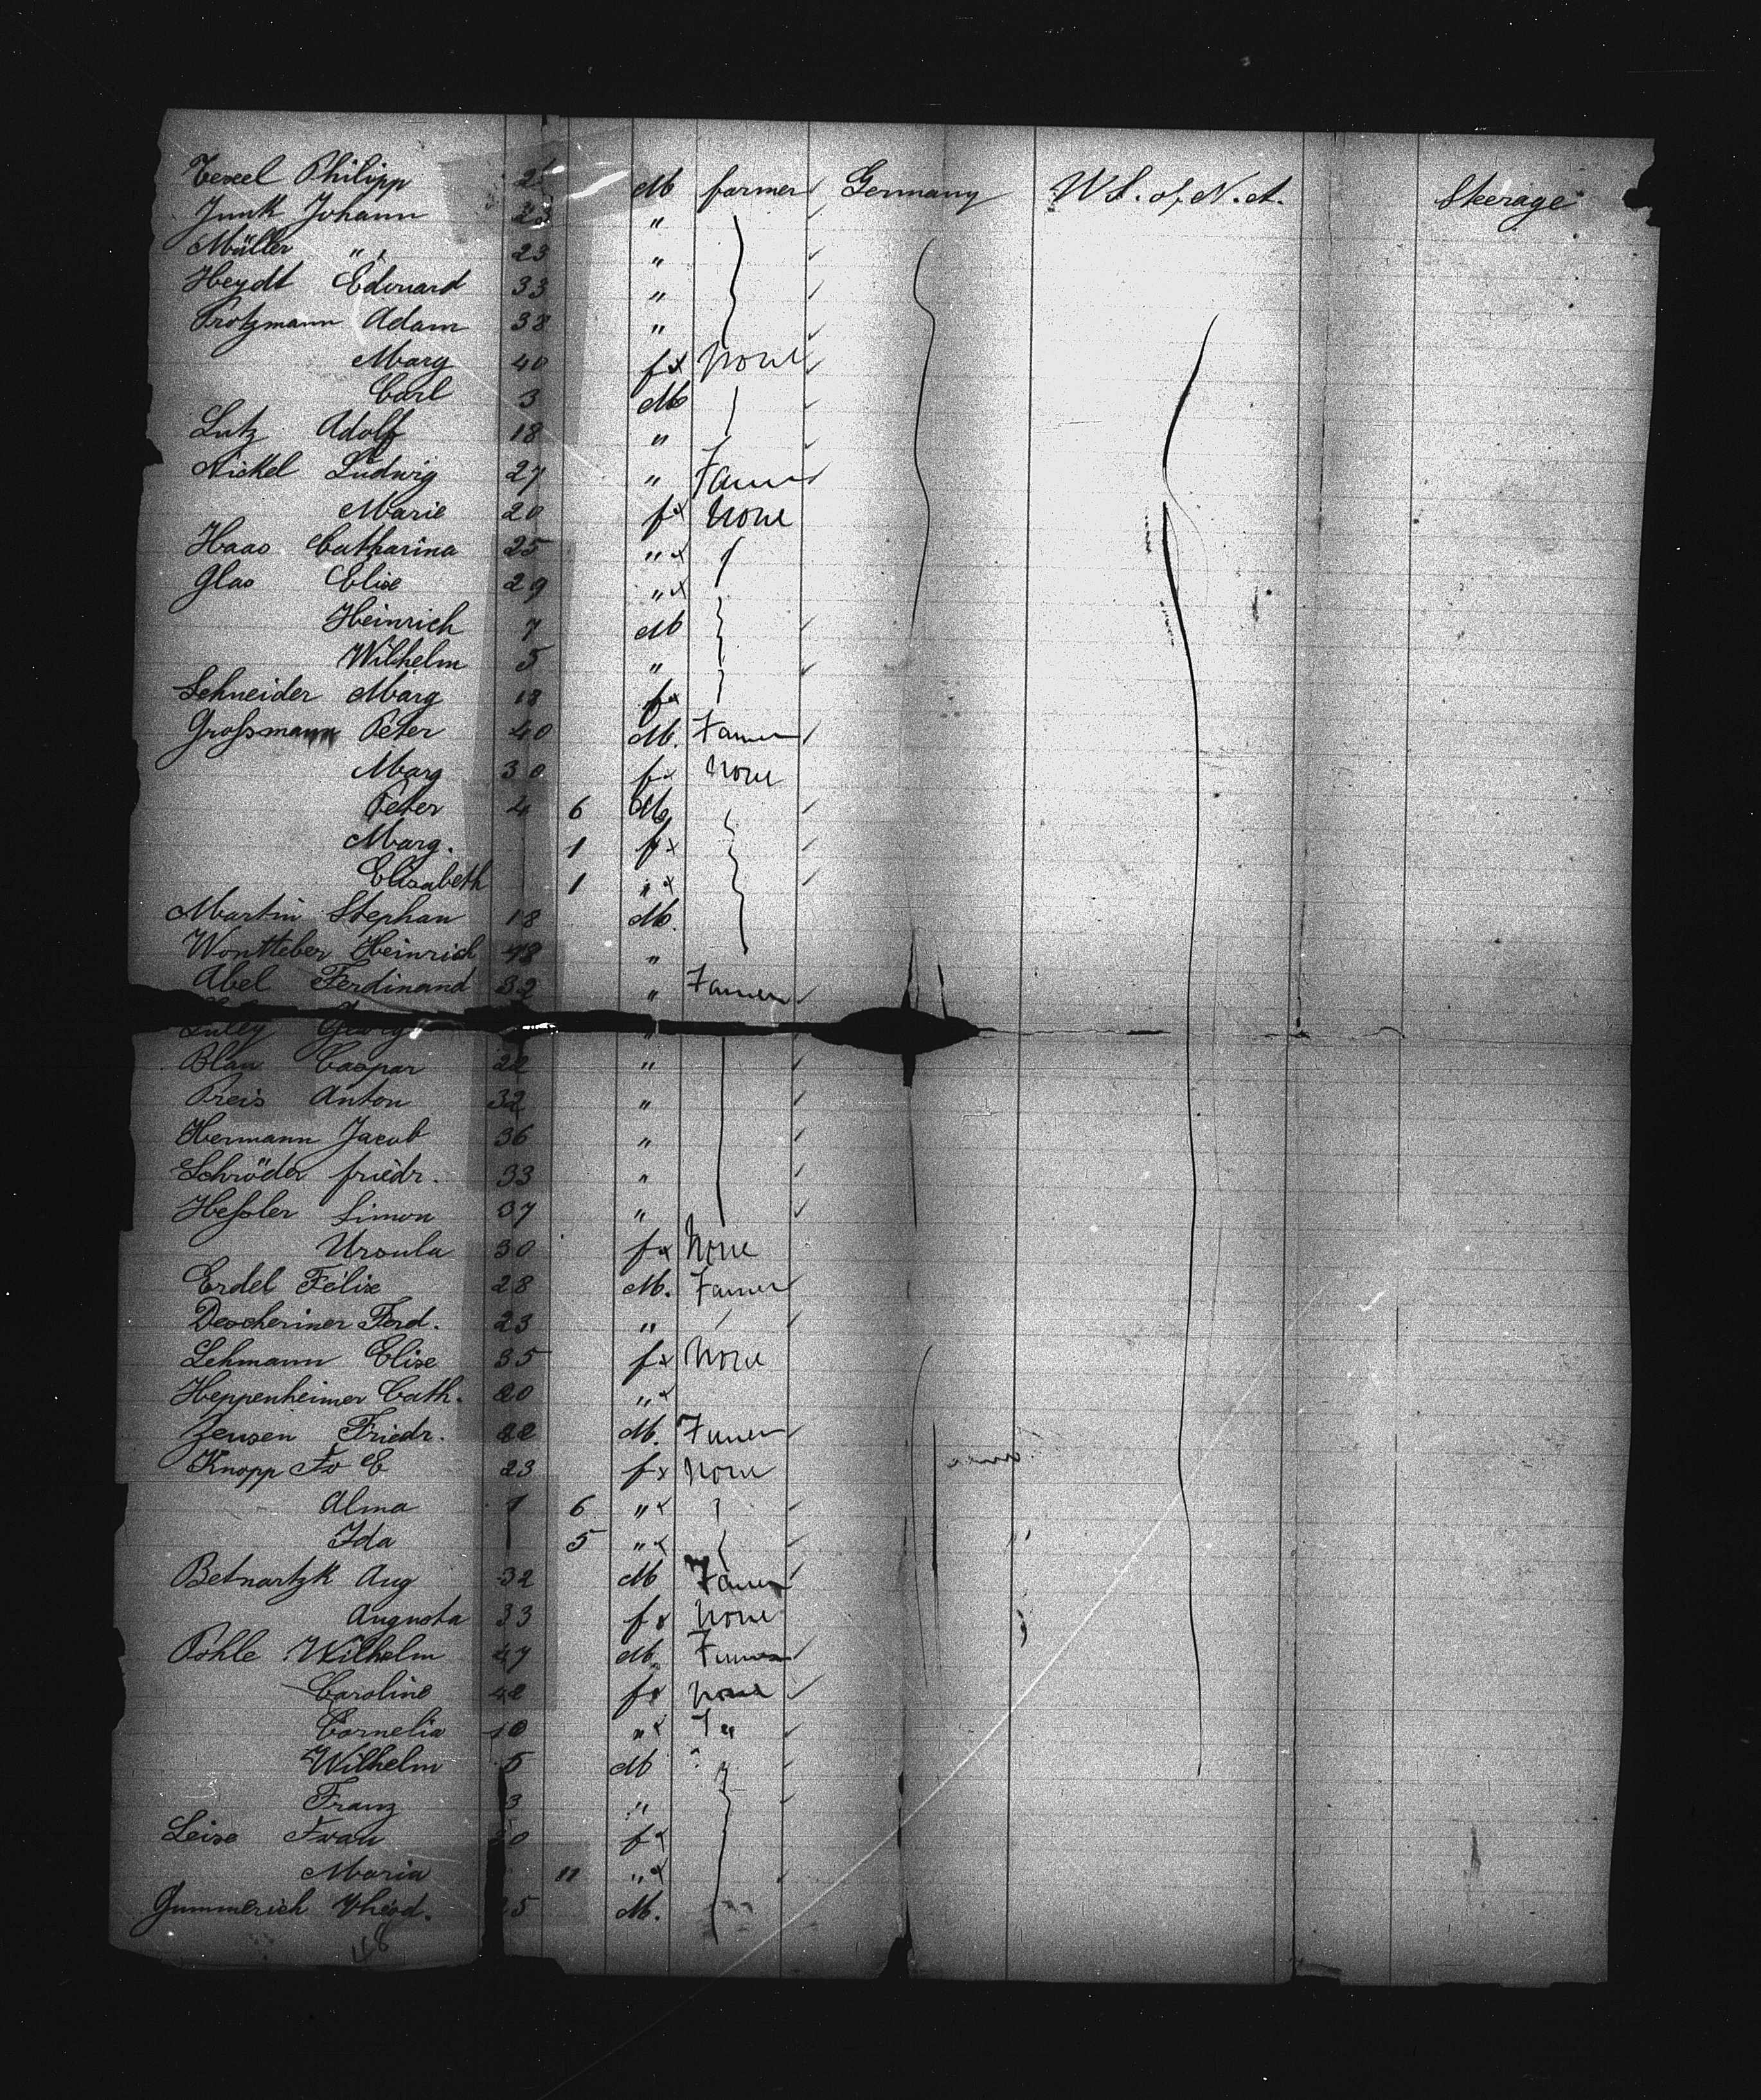 Philipp M farmer Germany U.S. of N.A. Steerage
Junk Johann 23 "
Müller " 23 "
Heydt Edouard 33 "
Protzmann Adam 38 "
Marg 40 f x None
Carl 3 M
Lutz Adolf 18 "
Nickel Ludwig 27 " Farmer
Marie 20 f x None
Haas Catharina 25 " x
Glas Elise 29 " x
Heinrich 7 M
Wilhelm 5 "
Schneider Marg 18 f x
Großmann Peter 40 M. Farmer
Marg 30 f x None
Peter 4 6 M
Marg. 1 f x
Elisabeth 1 " x
Martin Stephan 18 M.
Heinrich 48 "
Abel Ferdinand 32 " Farmer
Georg "
Blau Caspar 22 "
Preis Anton 32 "
Hermann Jacob 36 "
Schröder friedr. 33 "
Heßler Simon 37 "
Ursula 30 f x None
Erdel Felix 28 M. Farmer
Ferd. 23 "
Lehmann Elise 35 f x None
Heppenheimer Cath. 20 " x
Friedr. 22 M. Farmer
Knopp Fr E 23 f x None
Alma 1 6 " x
Ida 5 " x
Betnartzk Aug 32 M Farmer
Augusta 33 f x None
Pohle Wilhelm 47 M Farmer
Caroline 42 f x None
Cornelia 10 " x "
Wilhelm 5 M
Franz 3 "
Leise Frau f x
Maria 11 " x
Gummerich Theod. M.
168